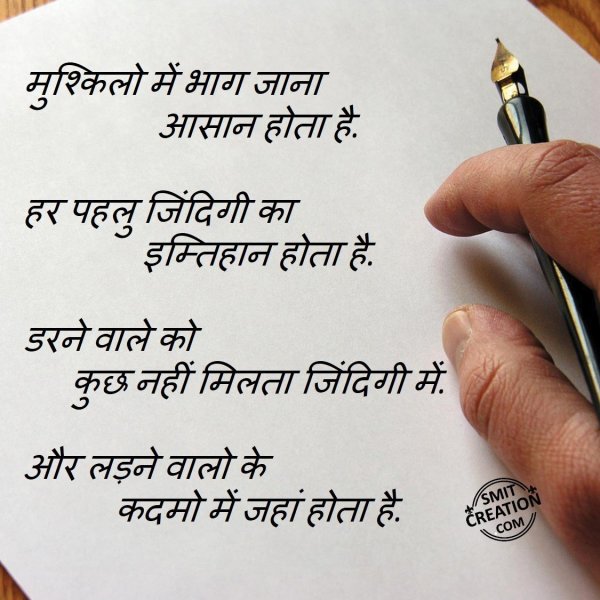 मुश्किलो में भाग जाना
आसान होता है.
हर पहलु जिंदिगी का
इम्तिहान होता है.
डरने वाले को
कुछ नहीं मिलता जिंदिगी में.
और लड़ने वालो के
कदमो में जहां होता है.
SMIT
CREATION
COM